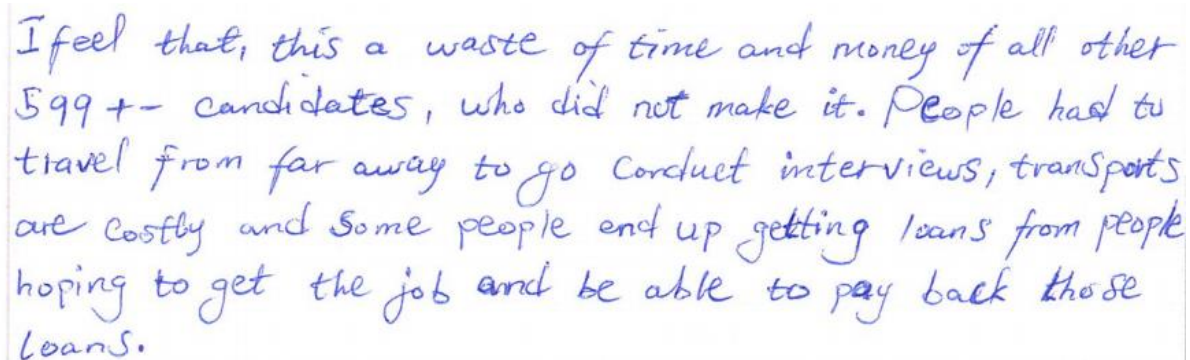 I feel that, this a waste of time and money of all other
599 +- candidates, who did not make it. People had to
travel from far away to go conduct interviews, transports
are costly and some people end up getting loans from people
hoping to get the job and be able to pay back those
loans.